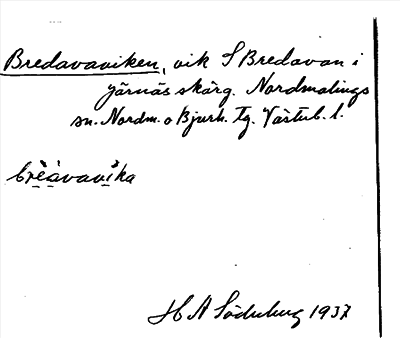 Bredavaviken, vik S Bredavan i
Järnäs skärg. Nordmalings
sn. Nordm. o Bjurh. tg. Västerb. l.
brèàvavika
H A Söderberg 1937